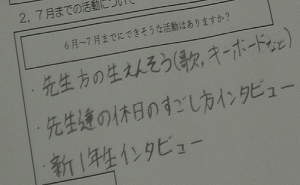 2. 7月までの活動について
6月～7月までにできそうな活動はありますか?
・先生方の生えんそう(歌,キーボードなど)
・先生達の休日のすごし方インタビュー
・新1年生インタビュー